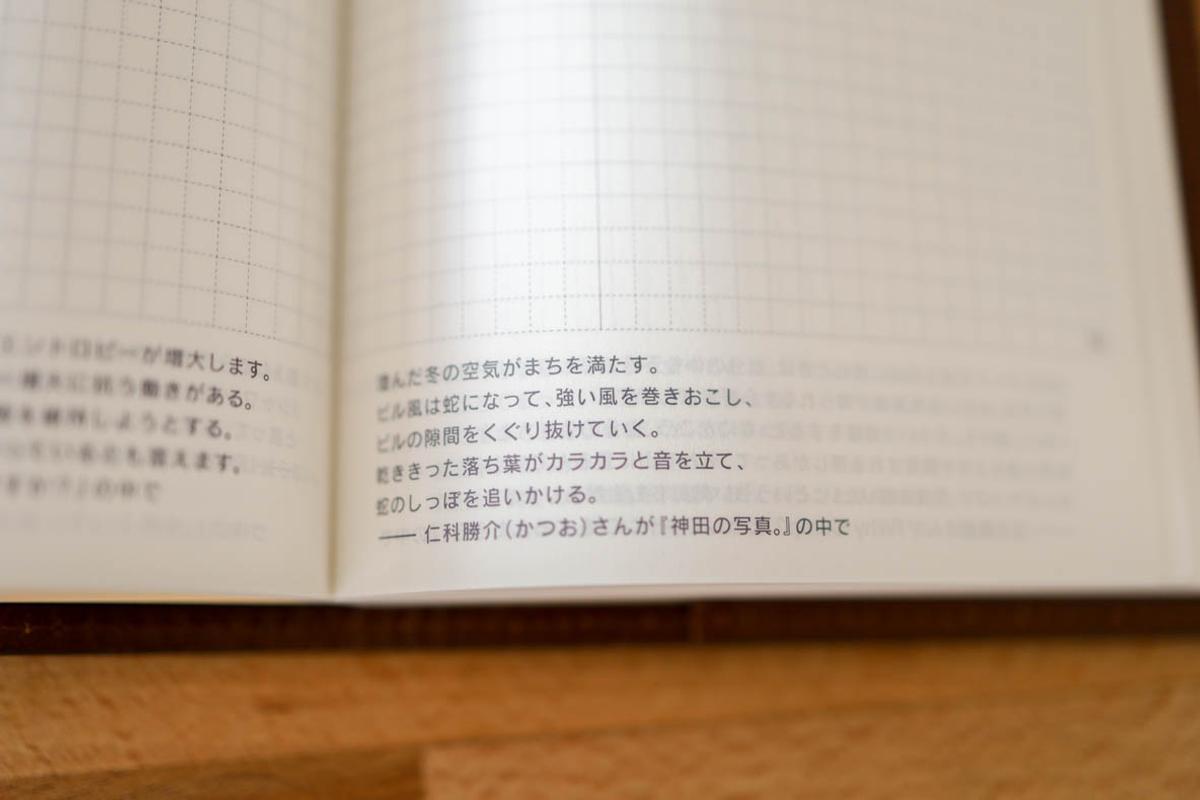 ントロピーが増大します。
に抗う働きがある。
維持しようとする。
とも言えます。
の中で
澄んだ冬の空気がまちを満たす。
ビル風は蛇になって、強い風を巻きおこし、
ビルの隙間をくぐり抜けていく。
乾ききった落ち葉がカラカラと音を立て、
蛇のしっぽを追いかける。
—— 仁科勝介(かつお)さんが『神田の写真。』の中で